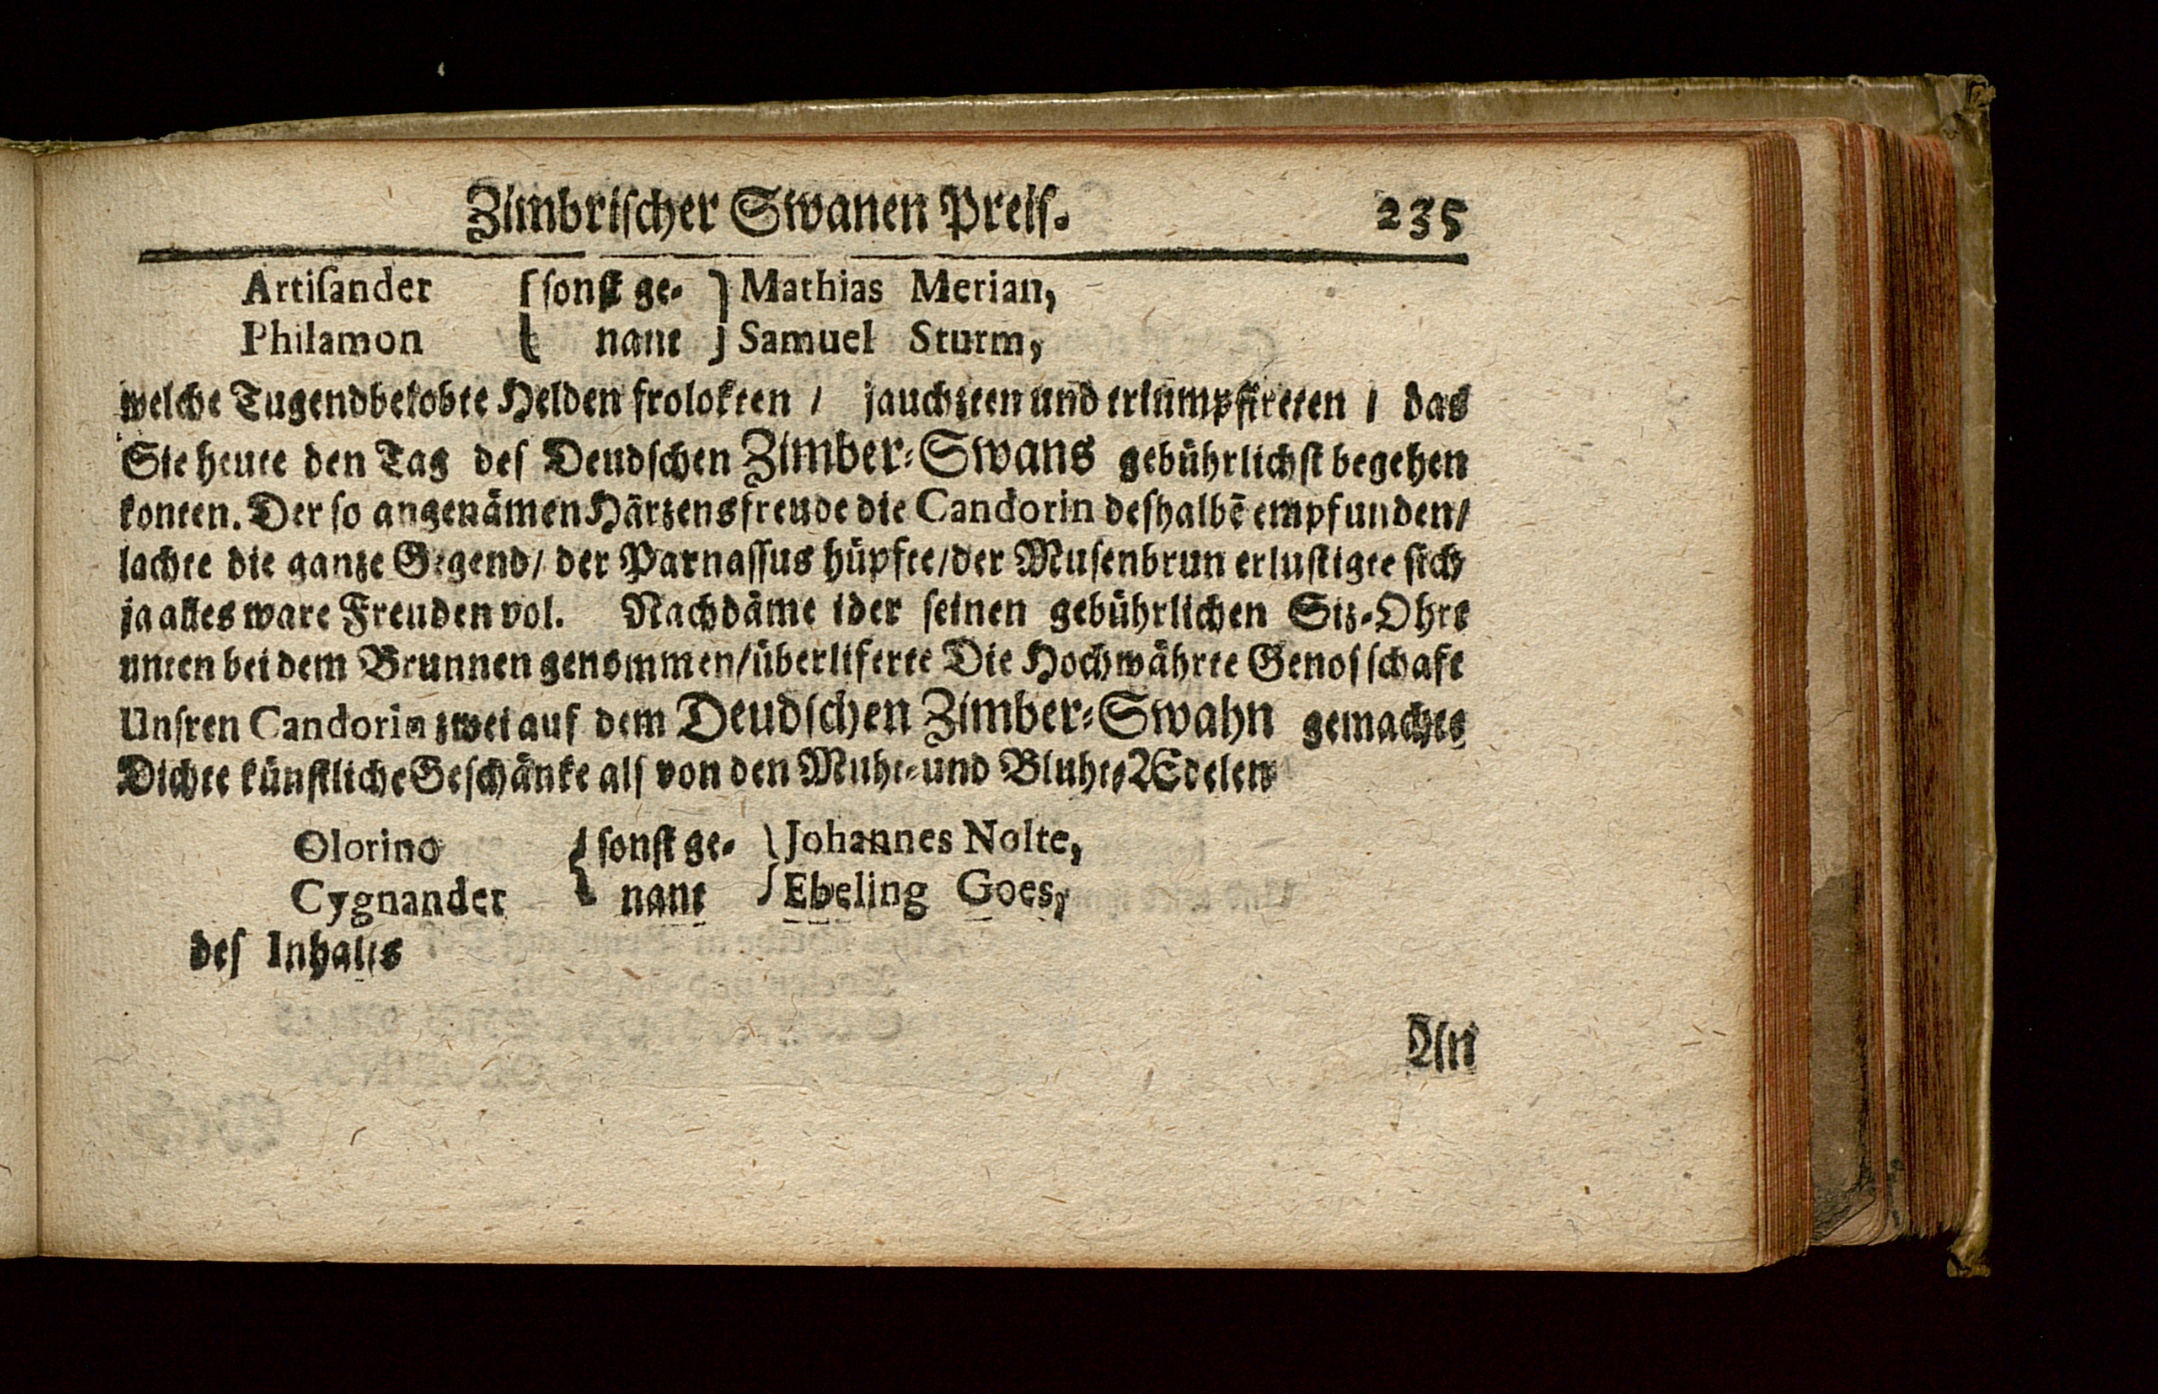 Zimbriſcher Swanen Preiſ. 235
Artiſander { ſonſt ge- } Mathias Merian,
Philamon { nant } Samuel Sturm,
welche Tugendbelobte Helden frolokten / jauchzten und triumpfireten / das
Sie heute den Tag deſ Deudſchen Zimber-Swans gebührlichſt begehen
konten. Der ſo angenämen Härzensfreude die Candorin deſhalbē empfunden/
lachte die ganze Gegend/ der Parnaſſus hüpfte/der Muſenbrun erluſtigte ſich
ja alles ware Freuden vol. Nachdäme ider ſeinen gebührlichen Siz-Ohrt
unten bei dem Brunnen genommen/überliferte Die Hochwährte Genosſchaft
Unſren Candorin zwei auf dem Deudſchen Zimber-Swahn gemachts
Dichte künſtliche Geſchänke alſ von den Muht-und Bluhts Aedelen
Olorino { ſonſt ge- } Johannes Nolte,
Cygnander { nant } Ebeling Goes,
deſ Inhalts
An